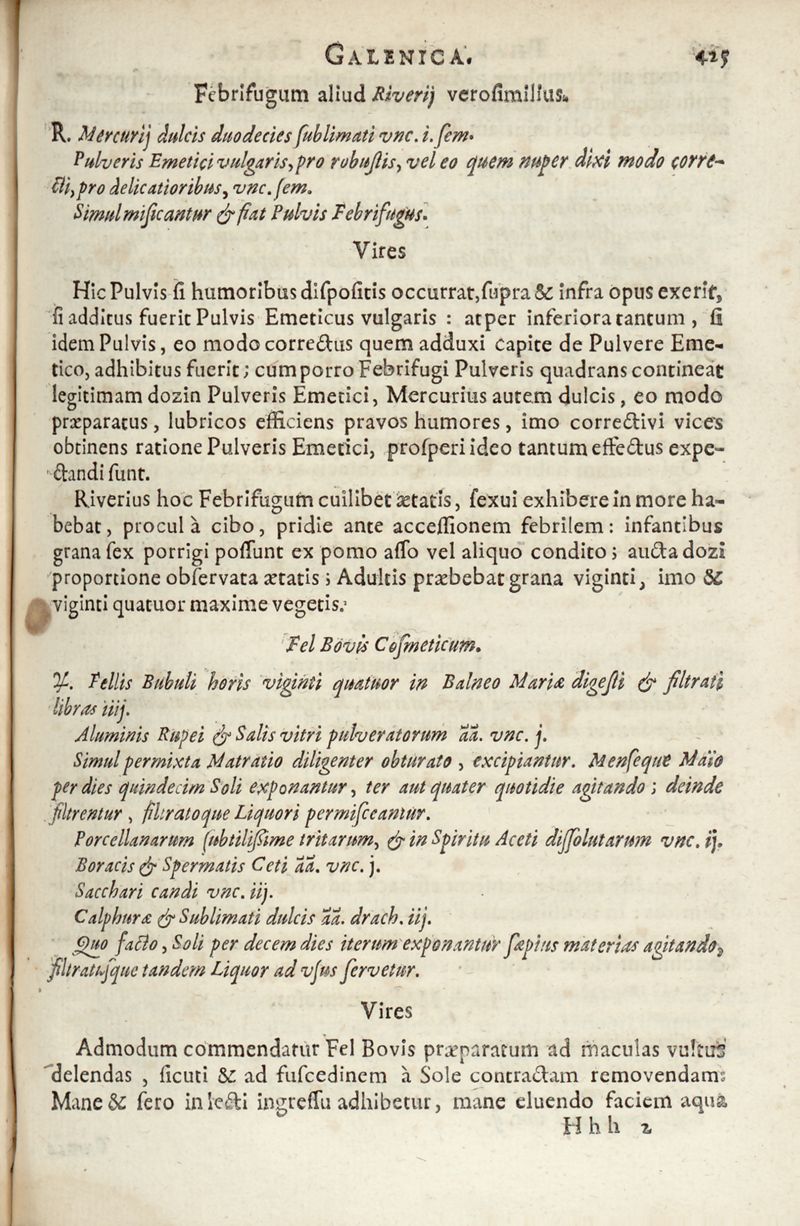 GALENICA. 425
Febrifugum aliud Riverij verosimilius.
R. Mercurij dulcis duodecies ſublimati vnc. i. ſem.
Pulveris Emetici vulgaris, pro robuſtis, vel eo quem nuper dixi modo corre-
cti, pro delicatioribus, vnc. ſem.
Simul miſicantur & fiat Pulvis Febrifugus.
Vires
Hic Pulvis ſi humoribus diſpoſitis occurrat, ſupra & infra opus exerit,
ſi additus fuerit Pulvis Emeticus vulgaris : at per inferiora tantum , ſi
idem Pulvis, eo modo correctus quem adduxi Capite de Pulvere Eme-
tico, adhibitus fuerit; cum porro Febrifugi Pulveris quadrans contineat
legitimam dozin Pulveris Emetici, Mercurius autem dulcis, eo modo
præparatus, lubricos efficiens pravos humores, imo correctivi vices
obtinens ratione Pulveris Emetici, proſperi ideo tantum effectus expe-
ctandi ſunt.
Riverius hoc Febrifugum cuilibet ætatis, ſexui exhibere in more ha-
bebat, procul à cibo, pridie ante acceſſionem febrilem: infantibus
grana ſex porrigi poſſunt ex pomo aſſo vel aliquo condito; aucta dozi
proportione obſervata ætatis; Adultis præbebat grana viginti, imo &
viginti quatuor maxime vegetis.
Fel Bovis Coſmeticum.
℞. Fellis Bubuli horis viginti quatuor in Balneo Mariæ digeſti & filtrati
libras iiij.
Aluminis Rupei & Salis vitri pulveratorum āā. vnc. j.
Simul permixta Matratio diligenter obturato , excipiantur. Menſeque Maio
per dies quindecim Soli exponantur, ter aut quater quotidie agitando ; deinde
filtrentur , filtratoque Liquori permiſceantur.
Porcellanarum ſubtiliſſime tritarum, & in Spiritu Aceti diſſolutarum vnc. ij.
Boracis & Spermatis Ceti āā. vnc. j.
Sacchari candi vnc. iij.
Calphuræ & Sublimati dulcis āā. drach. iij.
Quo facto, Soli per decem dies iterum exponantur ſæpius materias agitando,
filtratuſque tandem Liquor ad vſus ſervetur.
Vires
Admodum commendatur Fel Bovis præparatum ad maculas vultus
delendas , ſicuti & ad fuſcedinem à Sole contractam removendam:
Mane & ſero in lecti ingreſſu adhibetur, mane eluendo faciem aqua
Hhh 2